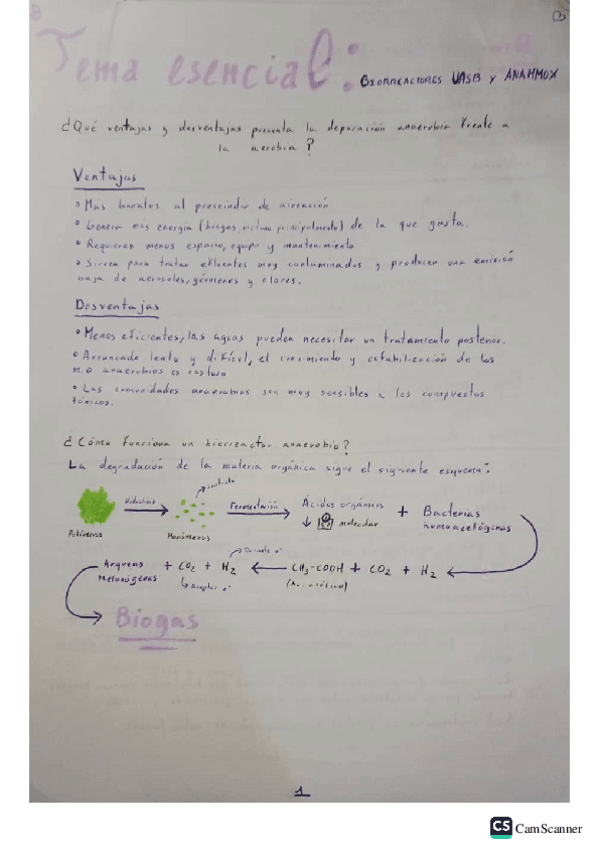 Tema esencial: BIORREACTORES UASB Y ANAMMOX
¿Qué ventajas y desventajas presenta la depuración anaerobia frente a
la aerobia?
Ventajas
• Más baratos al prescindir de aireación
• Genera más energía (biogás, metano principalmente) de la que gasta.
• Requieren menos espacio, equipo y mantenimiento
• Sirven para tratar efluentes muy contaminados y producen una emisión
baja de aerosoles, gérmenes y olores.
Desventajas
• Menos eficientes, las aguas pueden necesitar un tratamiento posterior.
• Arrancado lento y difícil, el crecimiento y estabilización de los
m.o anaerobios es costoso
• Las comunidades anaerobias son muy sensibles a los compuestos
tóxicos.
¿Cómo funciona un biorreactor anaerobio?
La degradación de la materia orgánica sigue el siguiente esquema:
Hidrólisis
Fermentación
Ácidos orgánicos
↓ molecular
+ Bacterias
homoacetógenas
Polímeros
Monómeros
Arqueas
metanógenas
+ CO2 + H2
Donante e-
Aceptor e-
CH3-COOH + CO2 + H2
Biogas
1
CS CamScanner